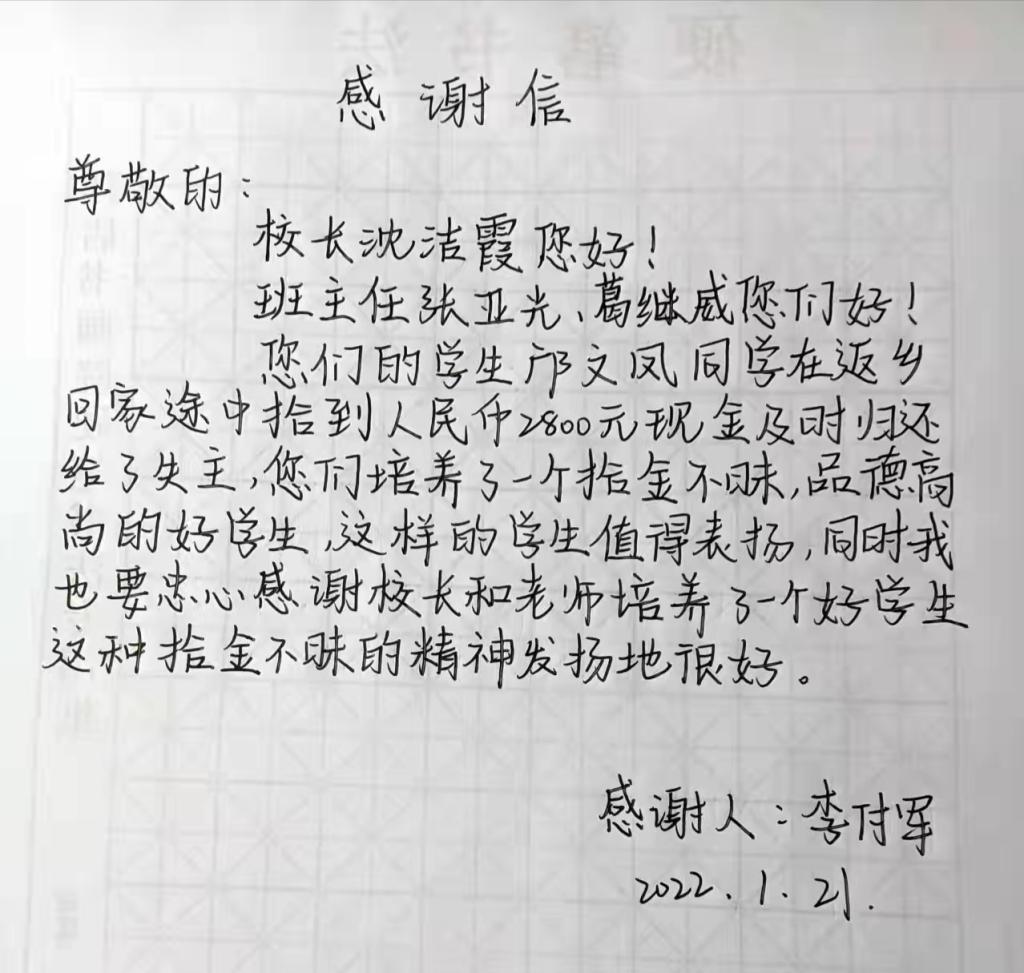 感谢信
尊敬的：
校长沈洁霞您好！
班主任张亚光、葛继威您们好！
您们的学生邝文凤同学在返乡
回家途中拾到人民币2800元现金及时归还
给了失主,您们培养了一个拾金不昧,品德高
尚的好学生,这样的学生值得表扬,同时我
也要忠心感谢校长和老师培养了一个好学生
这种拾金不昧的精神发扬地很好。
感谢人：李付军
2022.1.21.